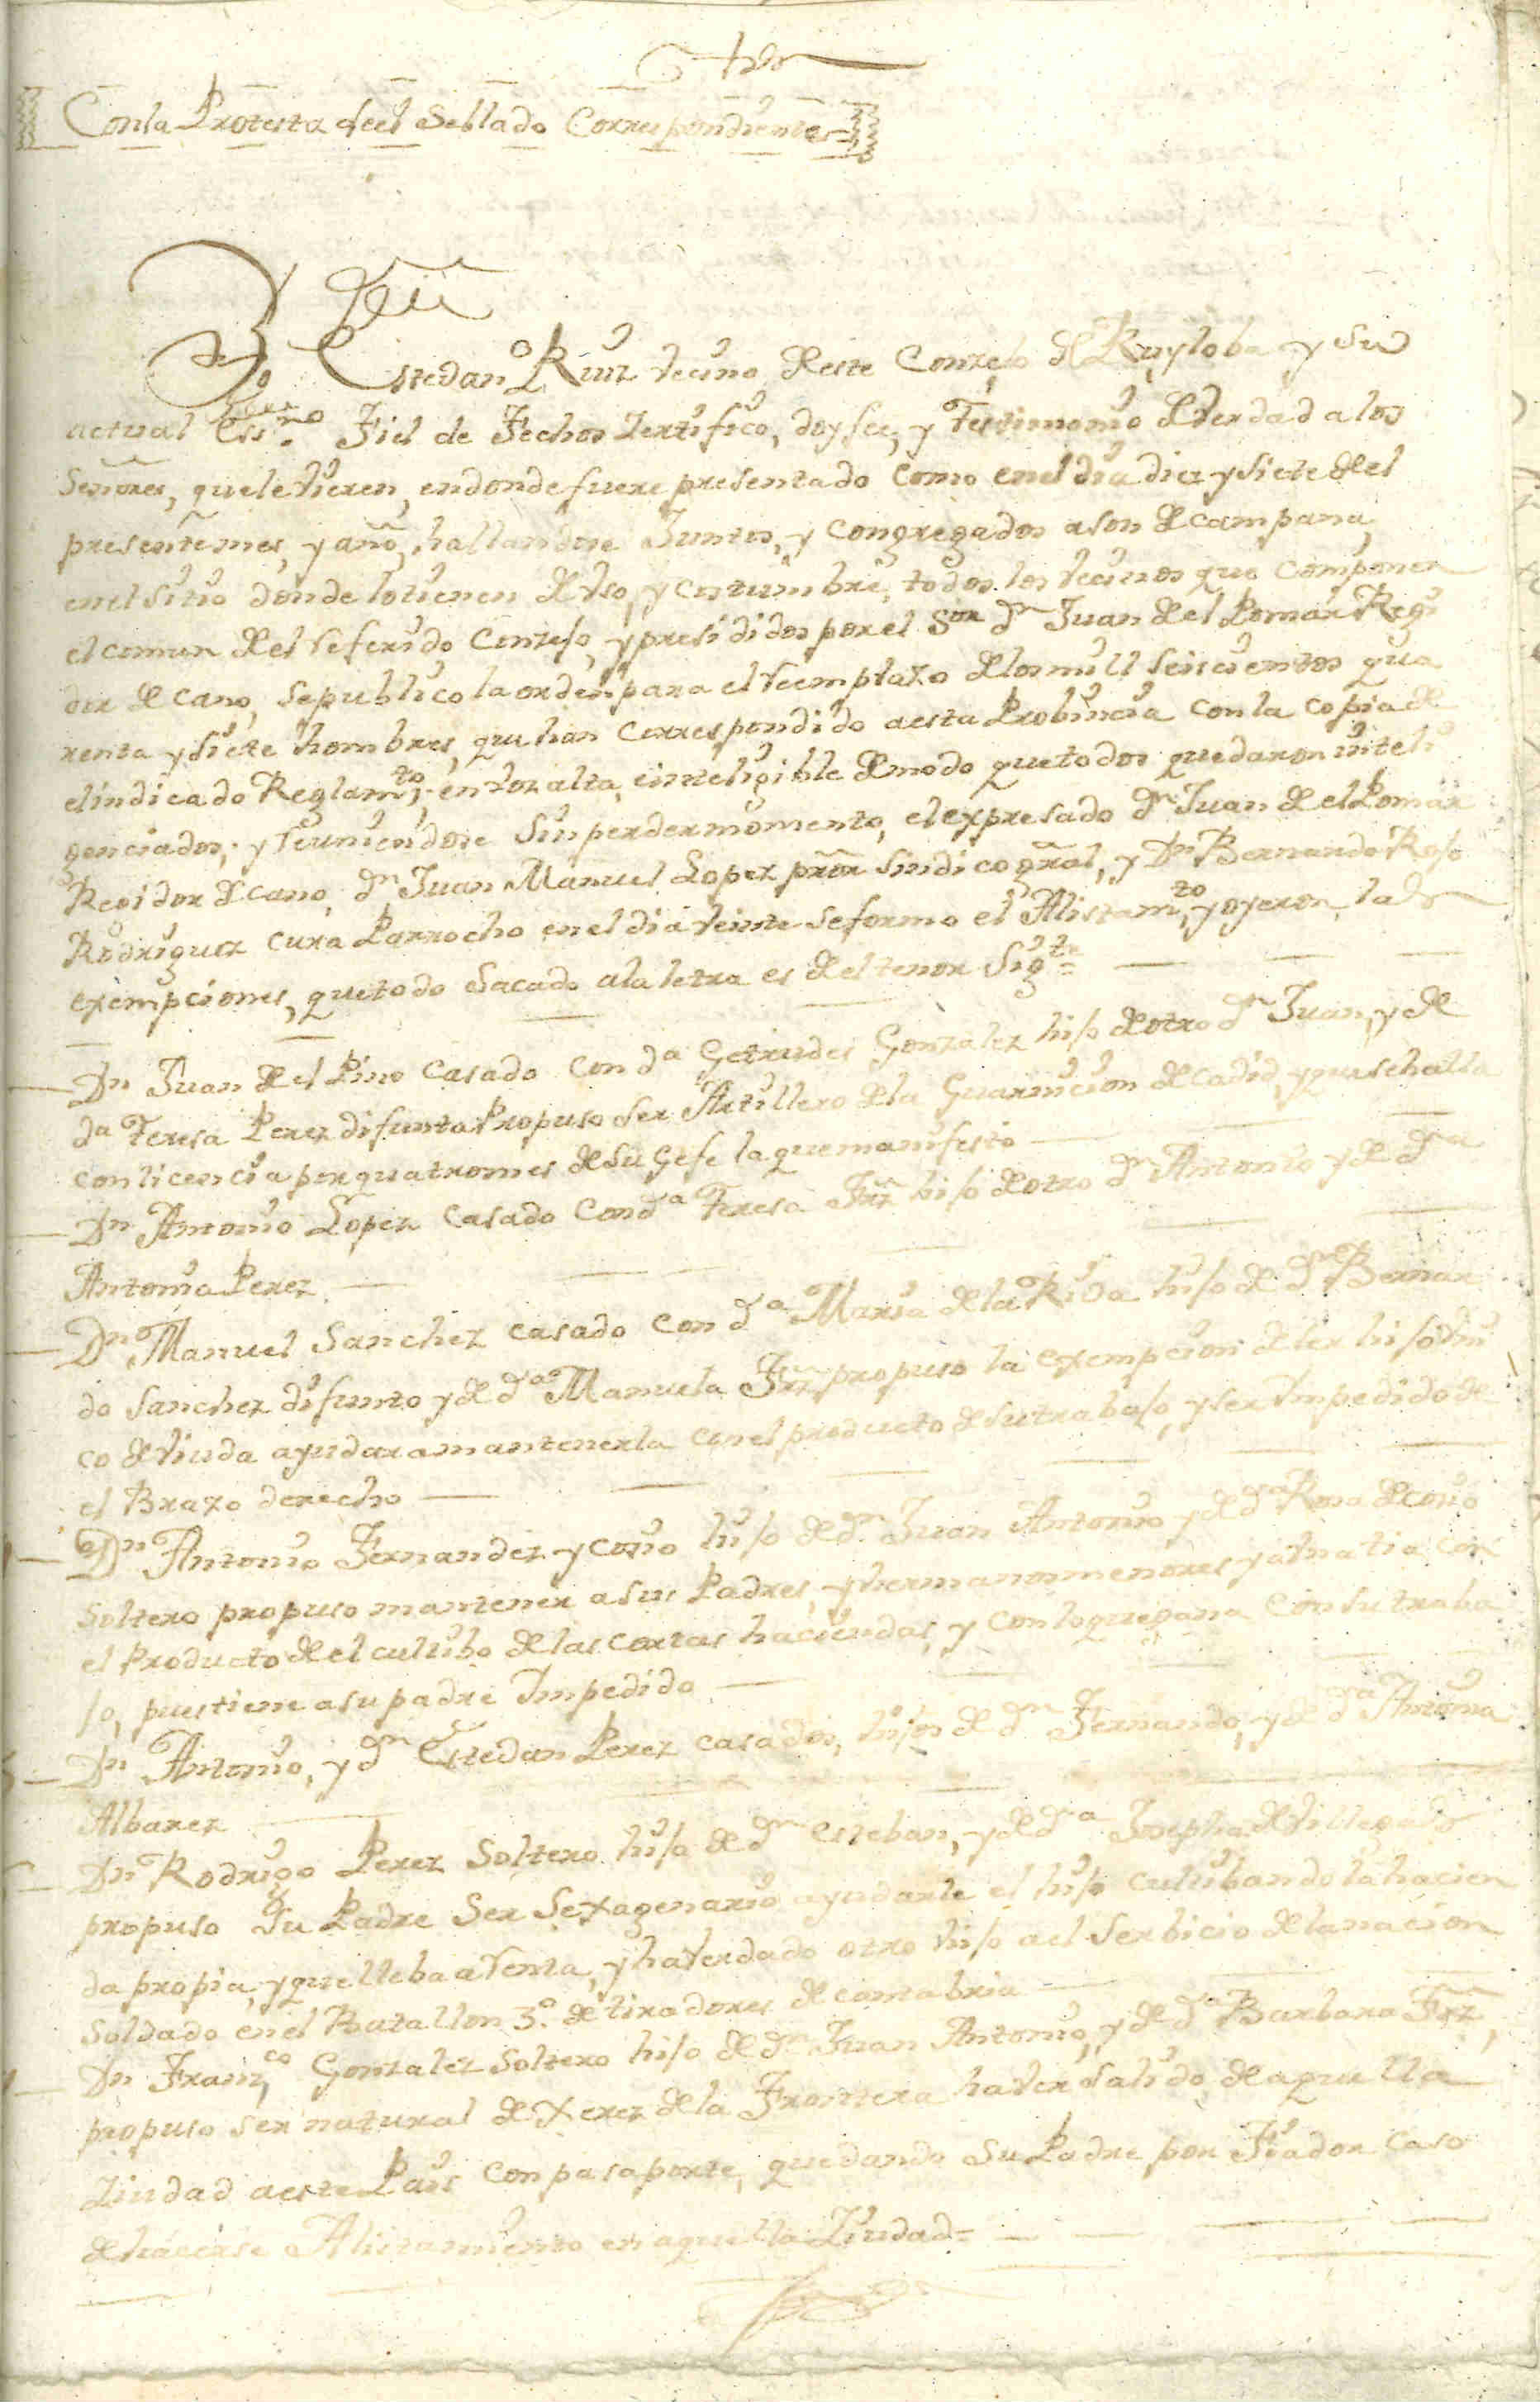 Conla Protesta deel Sellado Correspondiente
Yo Estevan Ruiz vecino deeste Conzejo de Ruyloba y su
actual Essno Fiel de Fechos Zertifico, doy fee, y Testimonio de verdad a los
Señores, quele vieren, endonde fuere presentado como enel dia diez y siete deel
presentemes, y año, hallandose Juntos, y congregados ason de campana,
enel sitio donde lotienen de Vso, y costumbre, todos los vecinos que componen
el comun deel referido Conzejo, y presididos por el Sor dn Juan deel Pomar Regi
dor decano, sepublico la orden para el reemplazo delos mill seiscientos qua
renta y siete hombres, que han correspondido aesta Probincia conla copia de
elindicado Reglamto, en voz alta, einteligible demodo quetodos quedaron inteli
genciados; y reuniendose sin perder momento, el expresado dn Juan deel Pomar
Regidor decano, dn Juan Manuel Lopez pror sindico gral, y Dn Bernardo Rojo
Rodriguez cura Parrocho enel dia veinte se formo el Alistamto, y oyeron las
exempciones, quetodo sacado ala letra es deel tenor sigte=
Dn Juan deel Pino casado con da Getrudes Gonzalez hijo deotro dn Juan, y de
da Teresa Perez difunta Propuso ser Artillero dela Guarnicion de cadid, y que sehalla
con licencia por quatromes de su Gefe la que manifesto
Dn Antonio Lopez casado con da Teresa Frz hijo deotro dn Antonio y de da
Antonia Perez
Dn Manuel Sanchez casado con da Maria dela Riva hijo de dn Bernar
do Sanchez difunto y de da Manuela Frz propuso la exempcion deser hijo vni
co de viuda ayudar amantenerla conel producto desu trabajo, y ser Impedido de
el Brazo derecho
Dn Antonio Fernandez y cosio hijo de dn Juan Antonio y de da Rosa de cosio
soltero propuso mantener a sus Padres, y hermanos menores y a vna tia con
el Producto deel culibo delas cortas haciendas, y con loquegana con su traba
jo, pues tiene asu padre Impedido
Dn Antonio, y dn Estevan Perez casados, hijos de dn Fernando, y de da Antonia
Albarez
Dn Rodrigo Perez soltero hijo de dn Esteban, y de da Josepha de Villegas
propuso su Padre ser sexagenario ayudarle el hijo culibando la hacien
da propia, y que lleba a renta, y haver dado otro hijo ael serbicio dela nacion
soldado en el Batallon 3.o de tiradores de cantabria
Dn Franco Gonzalez soltero hijo de dn Juan Antonio, y de da Barbara Frz,
propuso ser natural de Xerez dela Frontera haver salido de aquella
Ziudad aeste Pais con pasaporte, quedando su Padre por Fiador caso
dehacerse Alistamiento en aquella Ziudad=